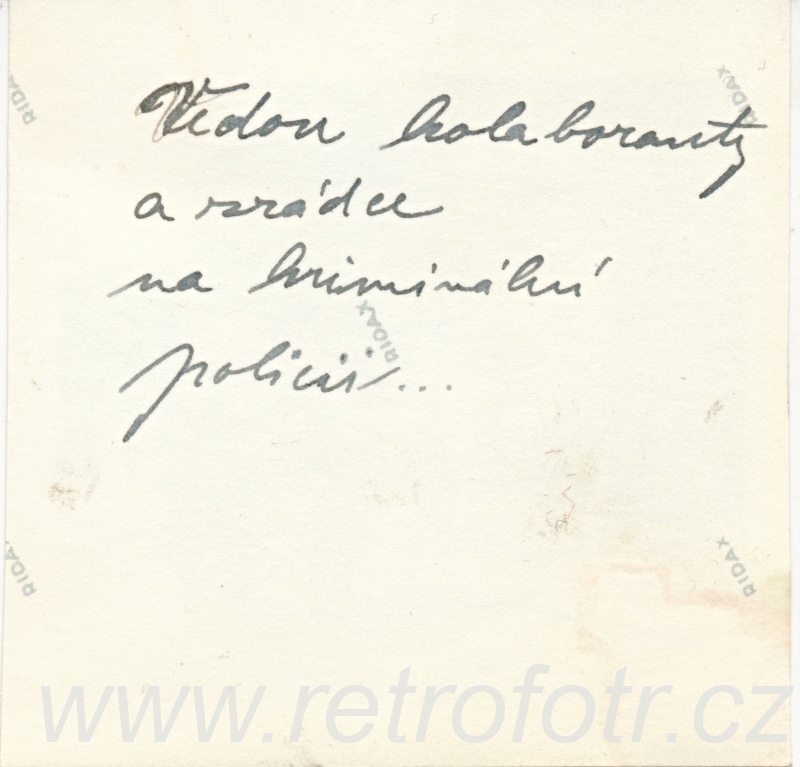 Vedou kolaboranty
a zrádce
na kriminální
policii...
RIDAX
RIDAX
RIDAX
RIDAX
RIDAX
www.retrofotr.cz